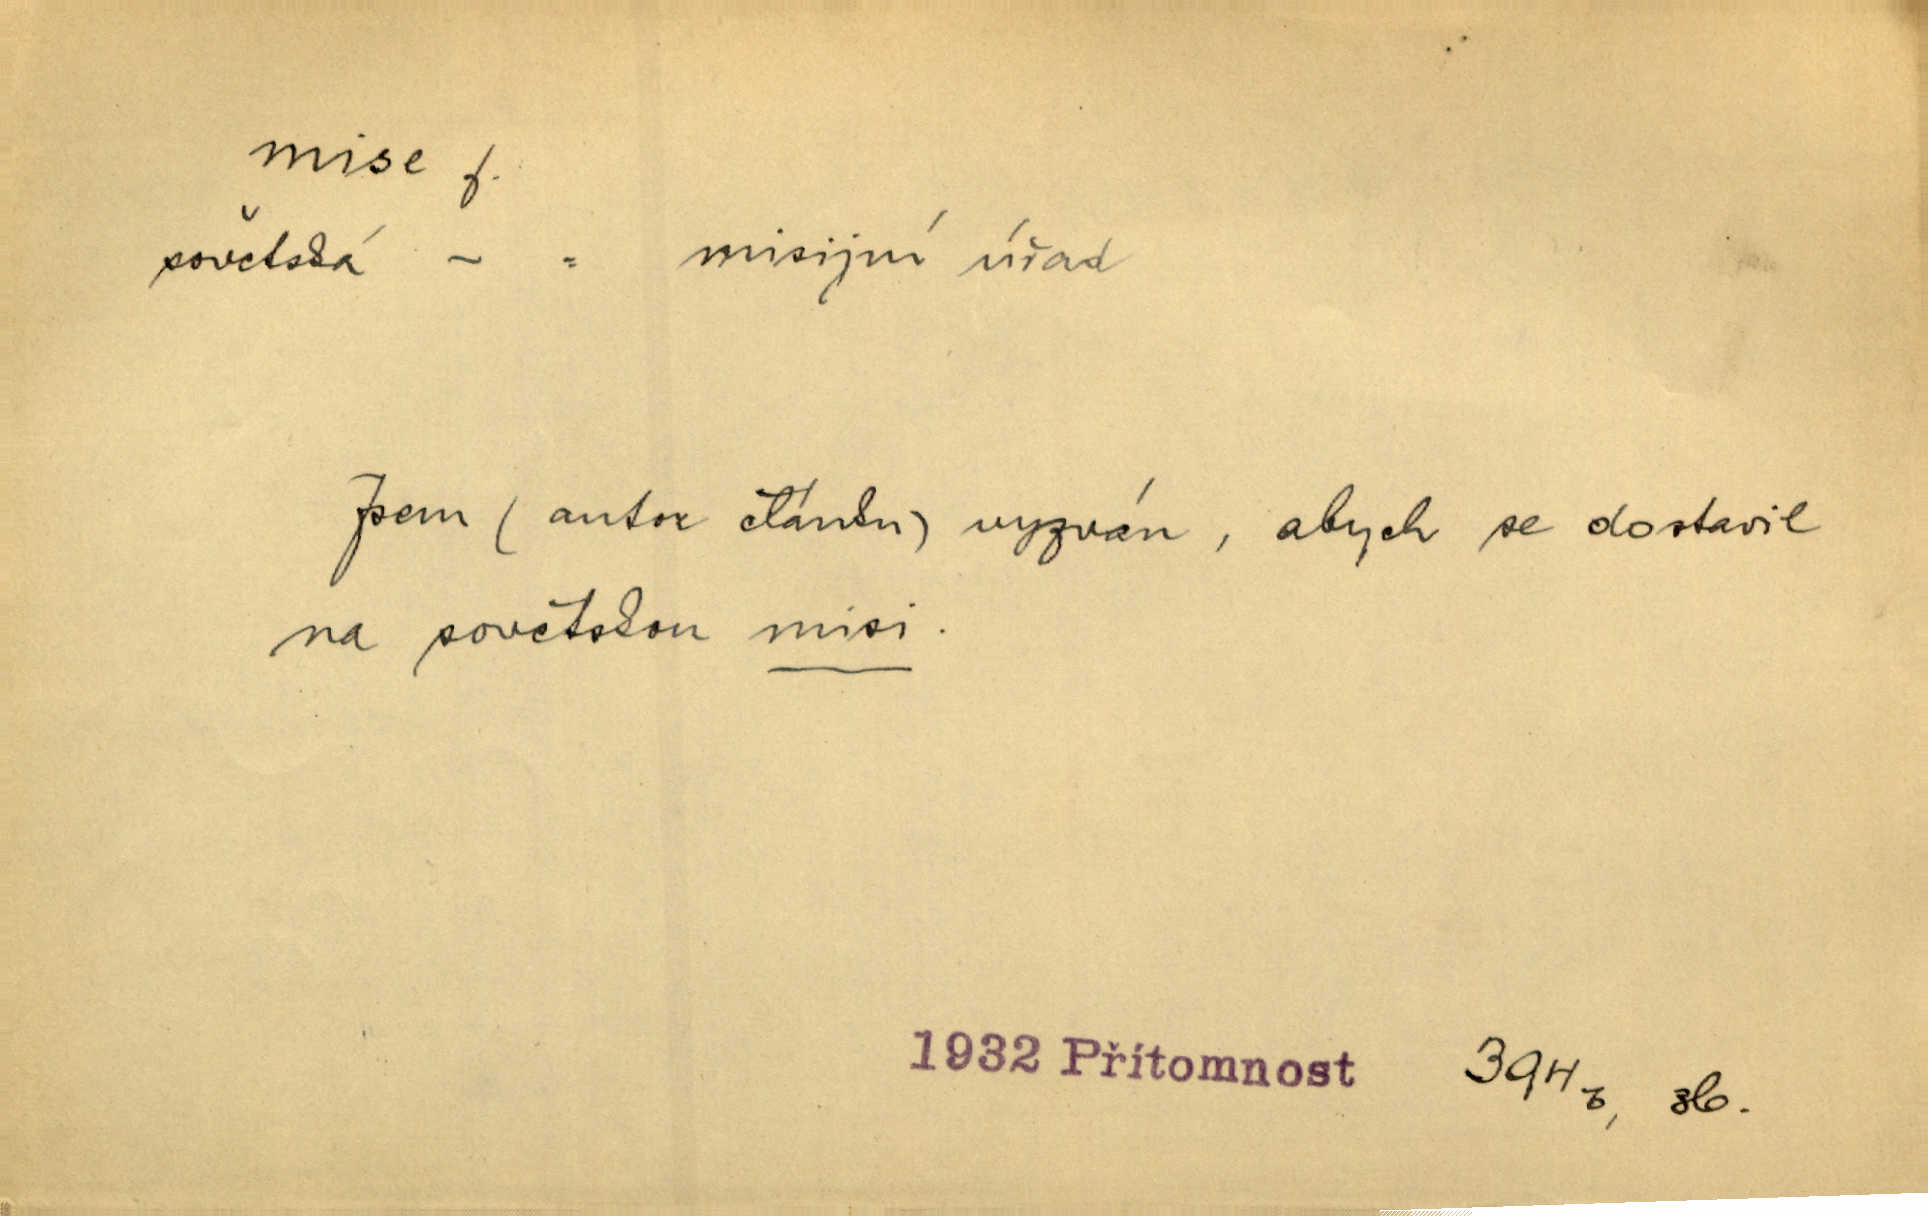 mise f.
sovětská ~ = misijní úřad
Jsem (autor článku) vyzván, abych se dostavil
na sovětskou misi.
1932 Přítomnost 394